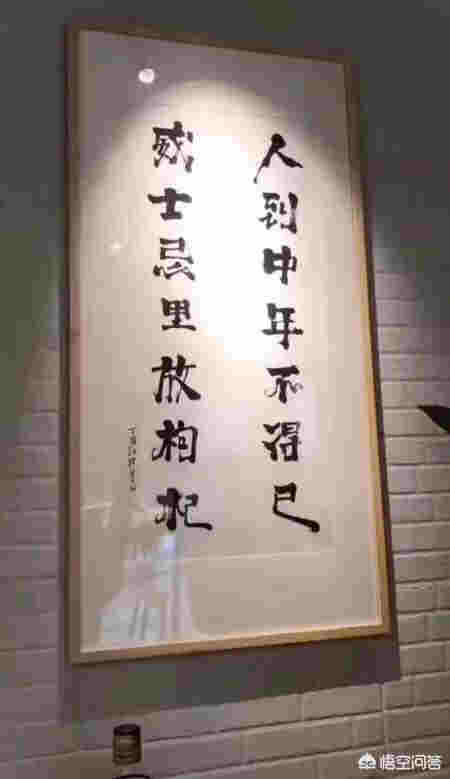 人到中年不得已
威士忌里放枸杞
悟空问答